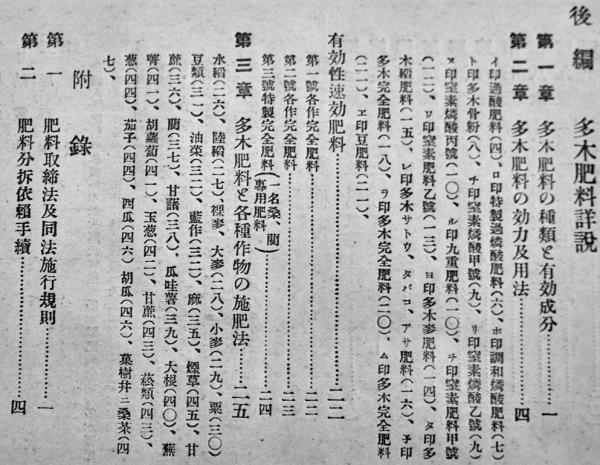 後編 多木肥料詳説
第一章 多木肥料の種類と有効成分……一
第二章 多木肥料の効力及用法……四
イ印過酸肥料(四)、ロ印特製過燐酸肥料(六)、ホ印調和燐酸肥料(七)
ト印多木骨粉(八)、チ印窒素燐酸甲號(九)、リ印窒素燐酸乙號(九)
ヌ印窒素燐酸丙號(一〇)、ル印九重肥料(一〇)、チ印窒素肥料甲號
(一二)、ワ印窒素肥料乙號(一三)、ヨ印多木麥肥料(一四)、タ印多
木稲肥料(一五)、レ印多木サトウ、タバコ、アサ肥料(一六)、子印
多木完全肥料(一八)、ラ印多木完全肥料(二〇)、ム印多木完全肥料
(二一)、ヱ印豆肥料(二一)、
有効性速効肥料……二二
第一號各作完全肥料……二二
第二號各作完全肥料……二三
第三號特製完全肥料(一名桑、藺専用肥料)……二四
第三章 多木肥料と各種作物の施肥法……二五
水稲(二六)、陸稲(二七)、裸麥、大麥(二八)、小麥(二九)、粟(三〇)
豆類(三一)、油菜(三二)、藍作(三二)、麻(三五)、煙草(四五)、甘
蔗(三六)、藺(三七)、甘藷(三八)、瓜哇薯(三九)、大根(四〇)、蕪
菁(四一)、胡蘿蔔(四一)、玉葱(四二)、甘蔗(四三)、菘類(四三)、
葱(四四)、茄子(四四)、西瓜(四六)、胡瓜(四六)、菓樹幷ニ桑茶(四
七)、
附錄
第一 肥料取締法及同法施行規則……一
第二 肥料分拆依賴手續……四